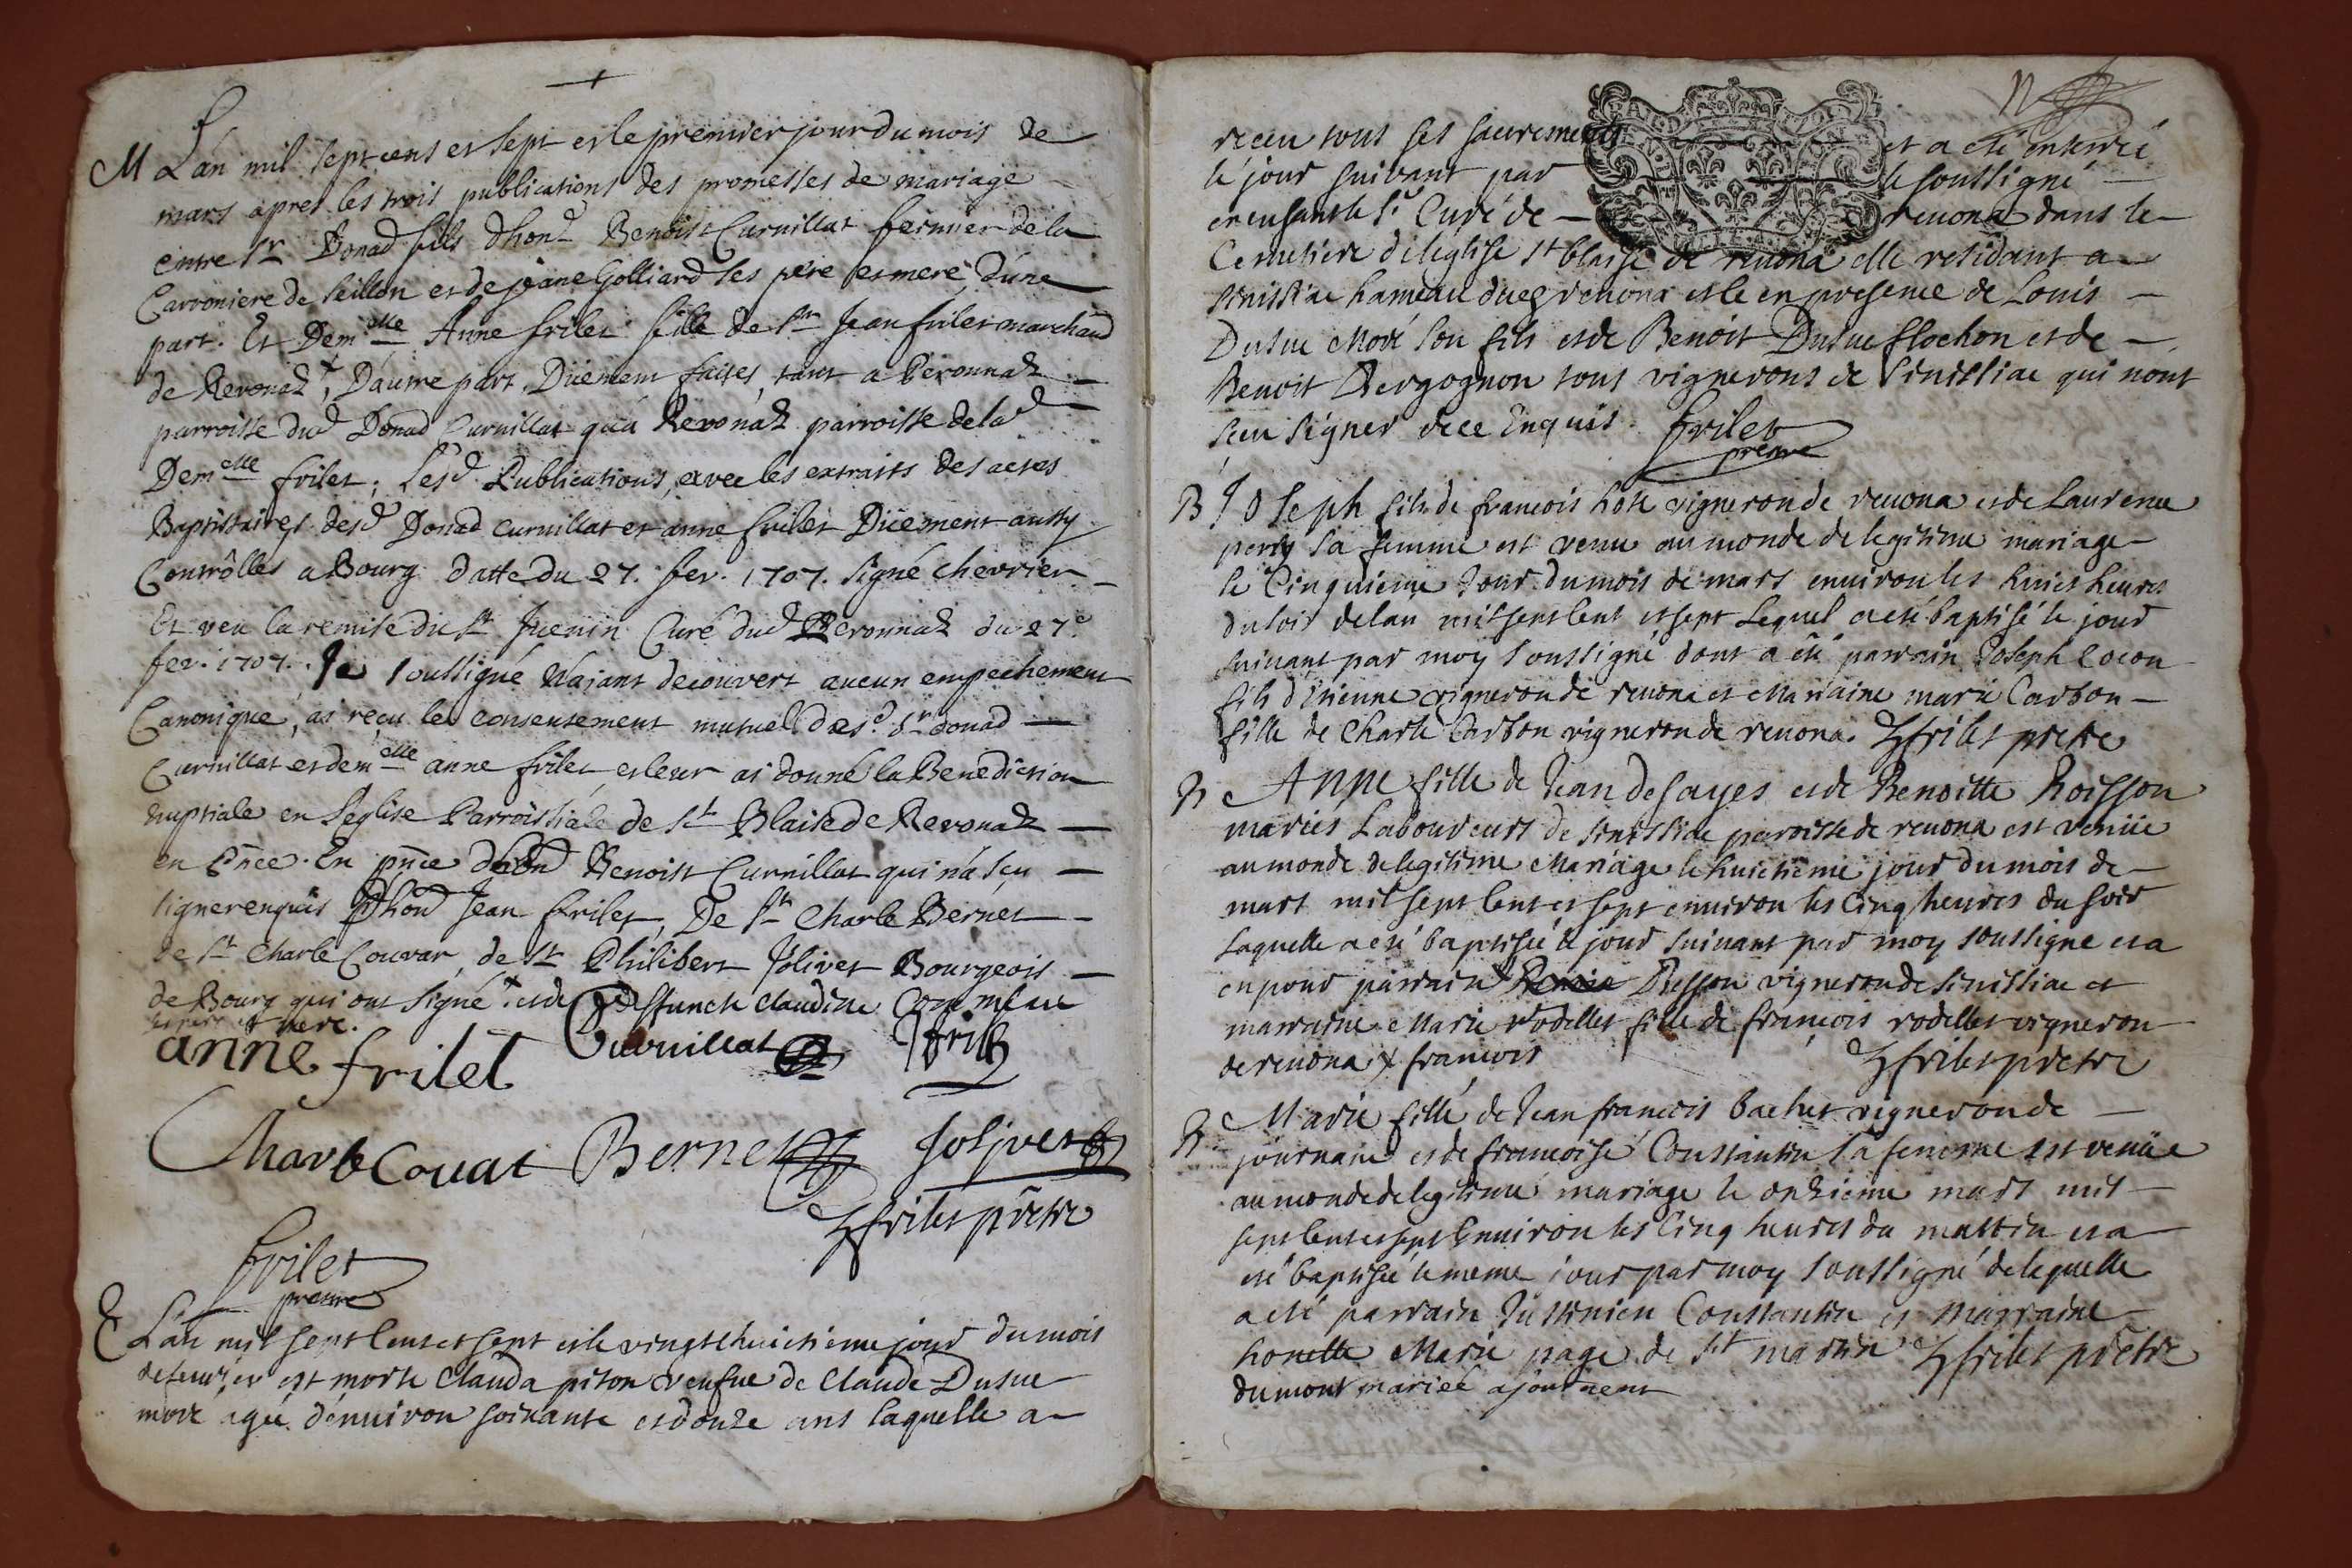 M L'an mil sept cens et sept et le premier jour du mois de
mars apres les trois publications des promesses de mariage
entre sr Donad fils d'hond Benoist Curnillat fermier de la
Carroniere de Seillon et de jeane Golliard ses pere et mere, d'une
part. Et Demlle Anne frilet fille de sr Jean frilet marchand
de Revonaz +, D'autre part, Düement faites, tant a Peronnaz
parroisse dud Donad Curnillat qu'a Revonaz parroisse de lad
Demelle frilet; Lesd Publications, avec les extraits des actes
Baptistaires desd Donad curnillat et anne frilet Düement aussy
Contrôlles a Bourg datte du 27. fev. 1707. signé chevrier
Et veu la remise du sr Juenin Curé dud Peronnaz du 27e
fev. 1707. Je soussigné N'aiant decouvert aucun empechement
Canonique, ai reçu le consentement mutuel desd. sr donad
Curnillat et demelle anne frilet et leur ai donné la Benediction
nuptiale en l'eglise Parroissiale de st Blaise de Revonaz
en pñce. En pñce d'hond Benoist Curnillat qui n'a sçu
signer enquis d'hond Jean frilet, De sr Charle Bernet
de sr Charle Couvar, de sr Philibert Jolivet Bourgeois
de Bourg qui ont signé + et de claudine
et mere.
anne frilet Curnillat frilet
Charle Couat Bernet Jolivet
frilet prêtre
frilet
prêtre
E L'an mil sept cent et sept et le vingt huictieme jour du mois
de feurier est morte Clauda piton veufue de Claude Dusue
moré agée d'enuiron soixante et douze ans laquelle a
receu tous ses sacrements et a eté enterrée
le jour suivant par le soussigné
en l'absence sr Curé de reuona dans le
Cemetiere de leglise st blaise de reuona elle residant a
senissiac hameau dud reuona et le en presence de Louis
Dusue Moré son fils et de Benoit Dusue flochon et de
Benoit Bergognon tous vignerons de Sinissiac qui nont
sceu signer de ce Enquis. frilet
prêtre
B Joseph fils de francois vigneron de reuona et de Laurence
perry sa femme est venu au monde de legitime mariage
le Cinquieme Jour du mois de mars enuiron les huict heures
du soir de lan mil sept cent et sept Lequel a eté baptisé le jour
suiuant par moy soussigné dont a été parrain Joseph Cocon
fils d'Etienne vigneron de reuona et Marraine marie Carbon
fille de Charle Carbon vigneron de reuona. frilet prêtre
B Anne fille de Jean desayes et de Benoitte Boisson
mariés Laboureurs de sinissiac paroisse de reuona est venüe
au monde de legitime Mariage le huictieme jour du mois de
mars mil sept cent et sept enuiron les Cinq heures du soir
Laquelle a eté baptisée le jour suiuant par moy soussigné et a
eu pour parrain + Besson vigneron de sinissiac et
marraine Marie rodillet fille de françois rodillet vigneron
de reuona + francois frilet prêtre
B Marie fille de Jean francois bachet vigneron de
journain et de francoise Constantin sa femme est venüe
au monde de legitime mariage le onzieme mars mil
sept cent et sept Enuiron les Cinq heures du mattin et a
eté baptisée le meme jour par moy soussigné de laquelle
a eté parrain Justinien Constantin et Marraine
honette Marie page de st martin frilet prêtre
du mont mariée a journent